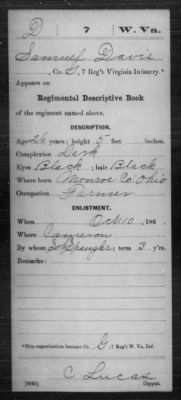 D 7 W. Va.
Samuel Davis
, Co. G, 7 Reg't Virginia Infantry.*
Appears on
Regimental Descriptive Book
of the regiment named above.
DESCRIPTION.
Age 26 years; height 5 feet inches.
Complexion Dark
Eyes Black; hair Black
Where born Monroe Co. Ohio
Occupation Farmer
ENLISTMENT.
When Oct 10, 186 .
Where Cameron
By whom Spangler; term 3 y'rs.
Remarks:
*This organization became Co. G, 7 Reg't W. Va. Inf.
C. Lucas
Copyist.